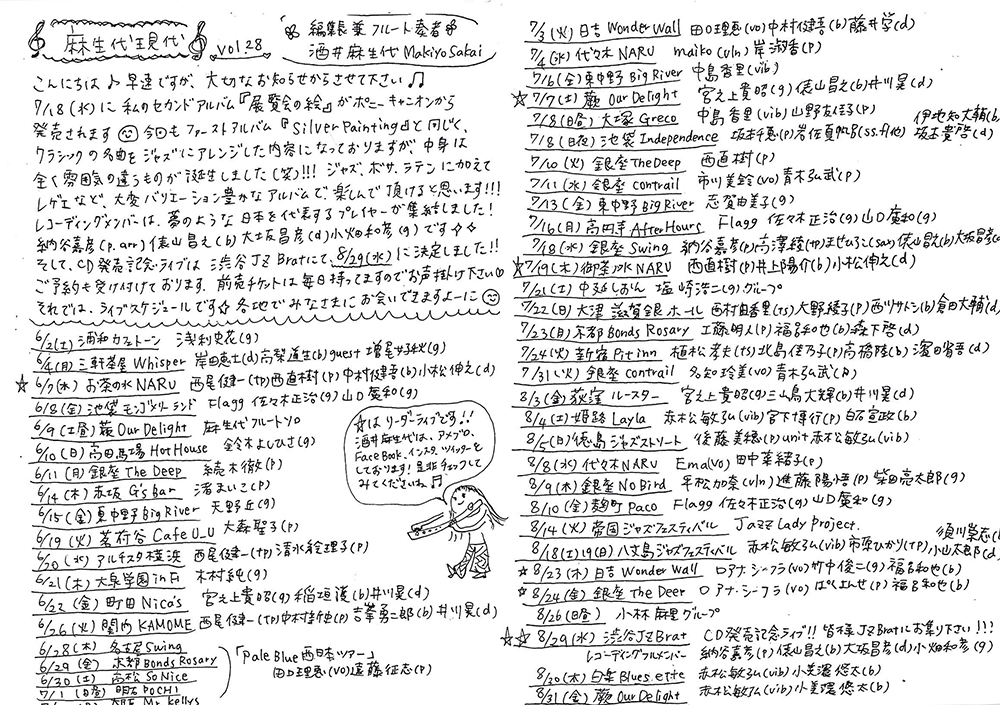 麻生代現代 vol.28
編集長兼フルート奏者
酒井麻生代 Makiyo Sakai
こんにちは♪早速ですが、大切なお知らせからさせて下さい♫
7/18(水)に私のセカンドアルバム『展覧会の絵』がポニーキャニオンから
発売されます 今回もファーストアルバム『Silver Painting』と同じく、
クラシックの名曲をジャズにアレンジした内容になっておりますが、中身は
全く雰囲気の違うものが誕生しました(笑)!!! ジャズ、ボサ、ラテンに加えて
レゲエなど、大変バリエーション豊かなアルバムで、楽しんで頂けると思います!!!
レコーディングメンバーは、夢のような日本を代表するプレイヤーが集結しました!
納谷嘉彦(p.arr)俵山昌之(b)大坂昌彦(d)小畑和彦(g)です☆☆
そして、CD発売記念ライブは渋谷JZ Bratにて、8/29(水)に決定しました!!
ご予約も受け付けております。前売チケットは毎日持ってますのでお声掛け下さい
それでは、ライブスケジュールです☆各地でみなさまにお会いできますよーに
6/2(土)浦和カフトーン 浅利史花(g)
6/4(月)三軒茶屋 Whisper 岸田恵士(d)高梨道生(b)guest 増尾好秋(g)
☆ 6/7(木)お茶の水 NARU 西尾健一(tp)西直樹(p)中村健吾(b)小松伸之(d)
6/8(金)池袋モンゴメリーランド Flagg 佐々木正治(g)山口廣和(g)
6/9(土昼)蕨 Our Delight 麻生代フルートソロ
6/10(日)高田馬場 Hot House 鈴木よしひさ(g)
6/11(月)銀座 The Deep 続木徹(p)
6/14(木)赤坂 G's Bar 渚まいこ(p)
6/15(金)東中野 Big River 天野丘(g)
6/19(火)茗荷谷 Cafe U_U 大森聖子(p)
6/20(水)アルチスタ横浜 西尾健一(tp)清水絵理子(p)
6/21(木)大泉学園 in F 木村純(g)
6/22(金)町田 Nica's 宮之上貴昭(g)稲垣護(b)井川晃(d)
6/26(火)関内 KAMOME 西尾健一(tp)中村雄史(p)吉峯勇二郎(b)井川晃(d)
6/28(木)名古屋 Swing
6/29(金)京都 Bonds Rosary
6/30(土)高松 So Nice
7/1(日昼)明石 POCHI
Mr. Kellys
「Pale Blue 西日本ツアー」
田口理恵(vo)遠藤征志(p)
☆はリーダーライブです!!
酒井麻生代は、アメブロ、
Face Book、インスタ、ツイッターを
しております!是非チェックして
みてくださいね♫
7/3(火)日吉 Wonder Wall 田口理恵(vo)中村健吾(b)藤井学(d)
7/4(水)代々木 NARU maiko(vln)岸淑香(p)
7/6(金)東中野 Big River 中島香里(vib)
☆ 7/7(土)蕨 Our Delight 宮之上貴昭(g)俵山昌之(b)井川晃(d)
7/8(日昼)大塚 Greco 中島香里(vib)山野友佳子(p) 伊地知大輔(b)
7/8(日夜)池袋 Independence 坂本千恵(p)岩佐真帆呂(ss.fl他)坂本貴啓(d)
7/10(火)銀座 The Deep 西直樹(p)
7/11(水)銀座 contrail 市川美鈴(vo)青木弘武(p)
7/13(金)東中野 Big River 志賀由美子(g)
7/16(月)高円寺 After Hours Flagg 佐々木正治(g)山口廣和(g)
7/18(水)銀座 Swing 納谷嘉彦(p)高澤綾(tp)ませひろこ(sax)俵山昌之(b)大坂昌彦(d)
☆ 7/19(木)御茶ノ水 NARU 西直樹(p)井上陽介(b)小松伸之(d)
7/21(土)中延しおん 塩崎浩二(g)グループ
7/22(日)大津 滋賀銀ホール 西村由香里(ts)大野綾子(p)西川サトシ(b)倉田大輔(d)
7/23(月)京都 Bonds Rosary 工藤明人(p)福呂和也(b)森下啓(d)
7/24(火)新宿 Pit inn 植松孝夫(ts)北島佳乃子(p)高橋陸(b)濱田省吾(d)
7/31(火)銀座 contrail 多和玲美(vo)青木弘武(p)
8/3(金)荻窪 ルースター 宮之上貴昭(g)三山島大輝(b)井川晃(d)
8/4(土)姫路 Layla 赤松敏弘(vib)宮下博行(p)白石宣政(b)
8/5(日)徳島ジャズストリート 後藤美穂(p)unit 赤松敏弘(vib)
8/8(水)代々木 NARU Ema(vo)田中菜緒子(p)
8/9(木)銀座 No Bird 平松加奈(vln)進藤陽悟(p)柴田亮太郎(g)
8/10(金)麹町 Paco Flagg 佐々木正治(g)山口廣和(g)
8/14(火)帝国ジャズフェスティバル Jazz Lady Project.
8/18(土)19(日)八丈島ジャズフェスティバル 赤松敏弘(vib)市原ひかり(tp)須川崇志(b)小山太郎(d)
☆ 8/23(木)日吉 Wonder Wall ロアナ・シーフラ(vo)竹中俊二(g)福呂和也(b)
☆ 8/24(金)銀座 The Deep ロアナ・シーフラ(vo)ぱくよんせ(p)福呂和也(b)
8/26(日昼) 小林麻里グループ
☆☆ 8/29(水)渋谷 JZ Brat CD発売記念ライブ!! 皆様JZ Bratにお集り下さい!!!
レコーディングフルメンバー 納谷嘉彦(p)俵山昌之(b)大坂昌彦(d)小畑和彦(g)
8/30(木)白楽 Blues.ette 赤松敏弘(vib)小美濃悠太(b)
8/31(金)蕨 Our Delight 赤松敏弘(vib)小美濃悠太(b)